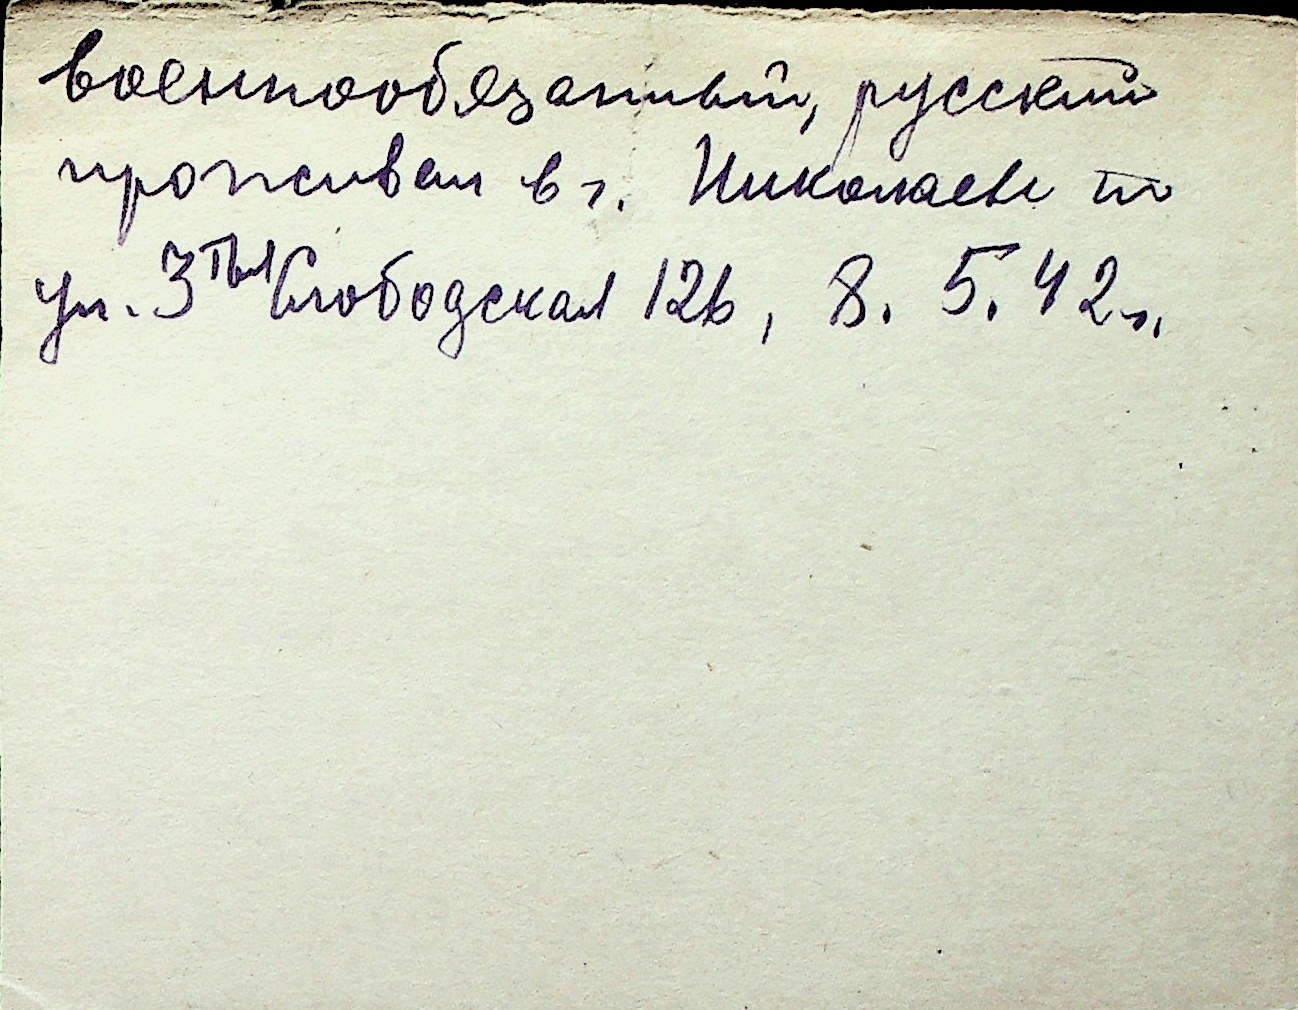 военнообязанный, русский
проживал в г. Николаеве по
ул. 3ᵀᵇᵃя Слободская 126, 8. 5. 42 г.